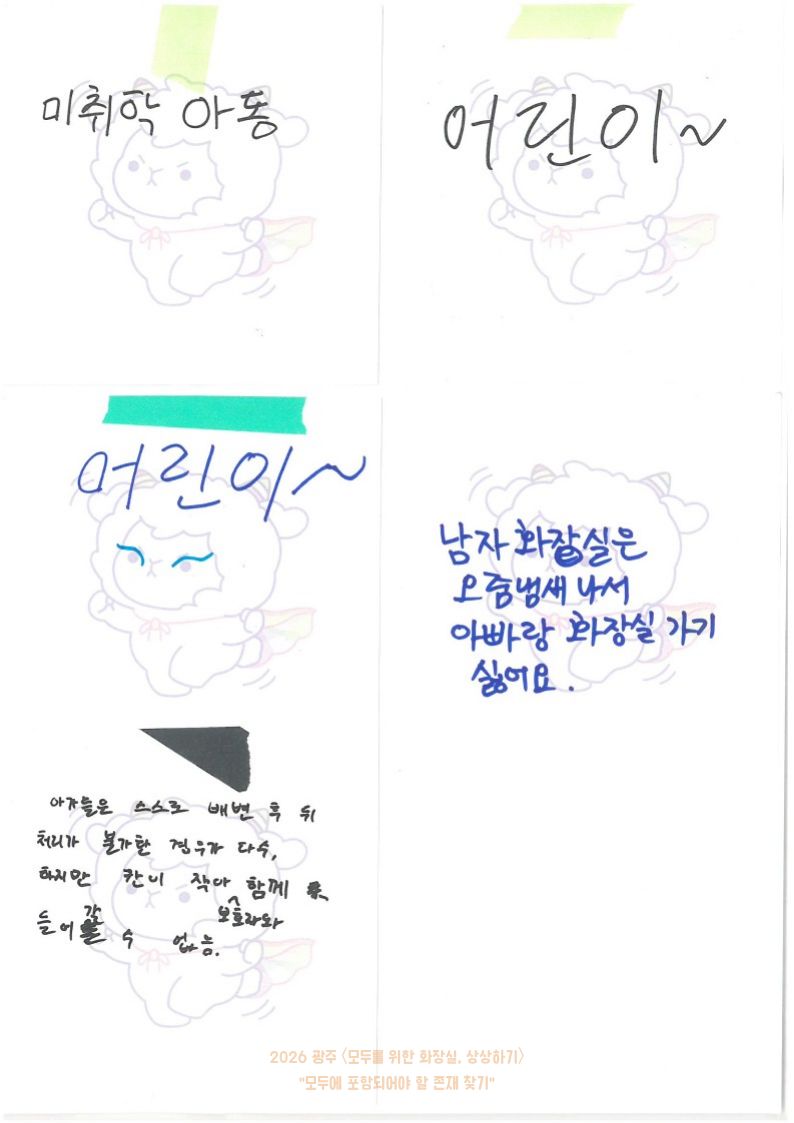 미취학 아동
어린이~
어린이~
남자 화장실은
오줌냄새 나서
아빠랑 화장실 가기
싫어요.
아가들은 스스로 배변 후 뒤
처리가 불가한 경우가 다수,
하지만 칸이 작아 보호자와 함께
들어갈 수 없음.
2026 광주 <모두를 위한 화장실, 상상하기>
"모두에 포함되어야 할 존재 찾기"